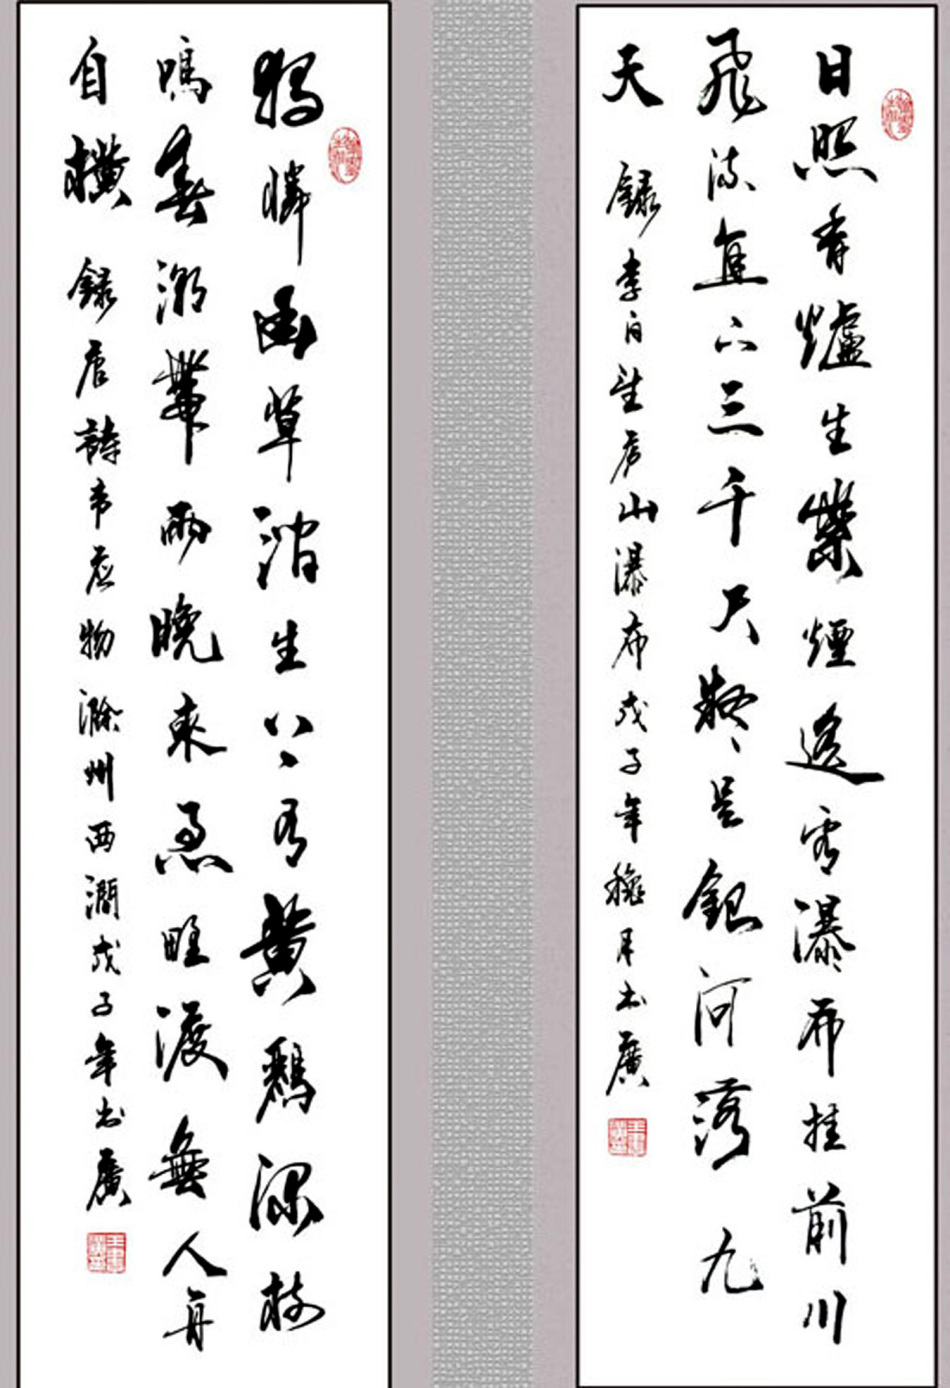 日照香爐生紫煙遙看瀑布挂前川
飛流直下三千尺疑是銀河落九
天 録李白望庐山瀑布戊子年穐月书廣
獨憐幽草澗生上有黃鸝深樹
鳴春潮帶雨晚來急野渡無人舟
自横 録唐詩韦应物滁州西澗戊子年书廣